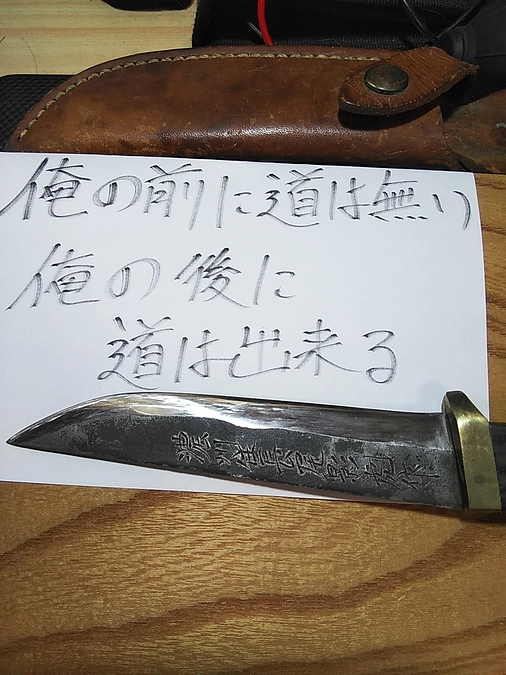 俺の前に道は無い
俺の後に
道は出来る
濃州住
作